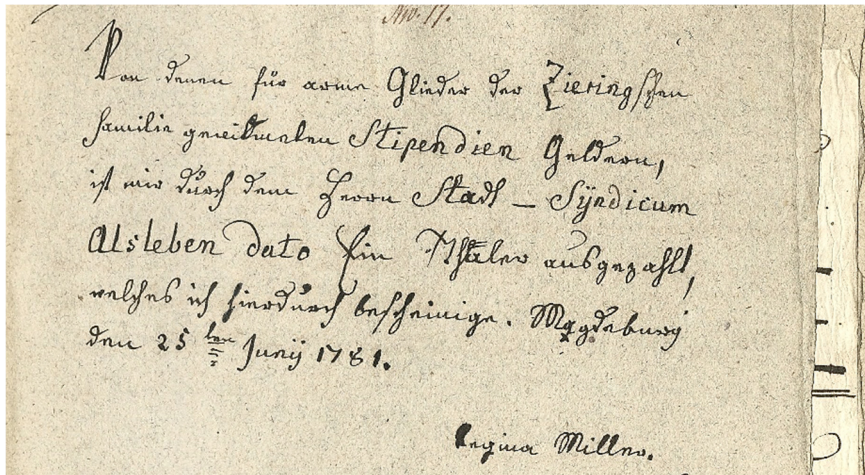 No. 17.
Von denen für arme Glieder der Zieringschen
Familie gewidmeten Stipendien Geldern,
ist mir durch dem Herrn Stadt - Sÿndicum
Alsleben dato Ein Thaler ausgezahlt,
welches ich hierdurch bescheinige. Magdeburg
den 25ten Junÿ 1781.
Regina Miller.